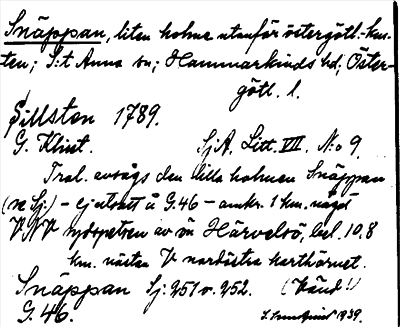 Snäppan, liten holme utanför östergötl.-kus-
ten; S:t Anna sn; Hammarkinds hd; Öster-
götl. l.
Sillsten 1789.
G. Klint. SjA. Litt. VII. No 9.
Trol. avsågs den lilla holmen Snäppan
(se Sj:) – ej utsatt å G.46 – omkr. 1 km. något
V NV sydspetsen av ön Härvelsö, bel. 10.8
km. nästan V nordöstra karthörnet.
Snäppan Sj: 251 v. 252. (Känd!)
G. 46. 1939.